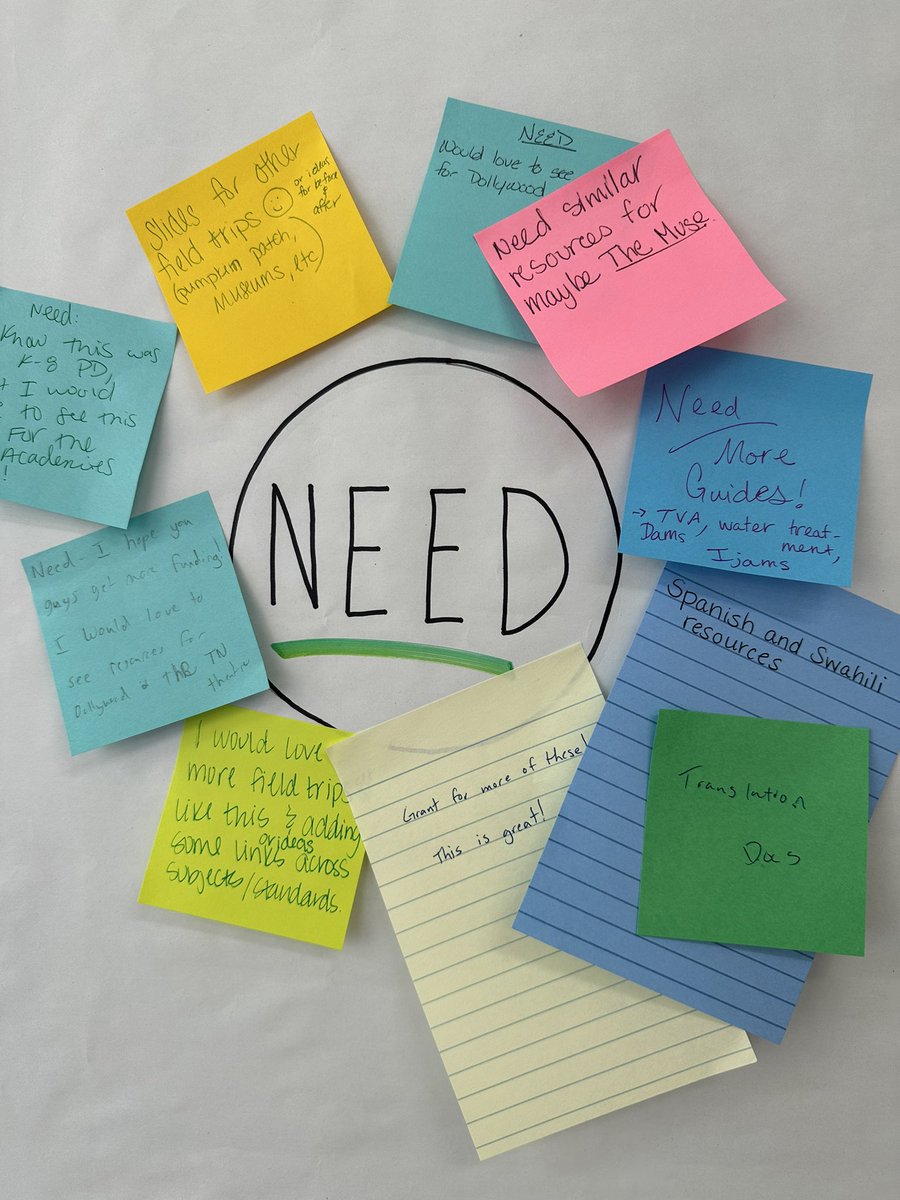 NEED
Slides for other
field trips ☺ or ideas
for before
&
after
(pumpkin patch,
Museums, etc)
NEED
Would love to see
for Dollywood
Need similar
resources for
maybe The Muse.
Need:
Know this was
K-8 PD,
I would
to see this
For the
Academies
!
Need
More
Guides!
→ TVA, water treat-
Dams ment,
Ijams
Need - I hope you
guys get more funding
I would love to
see resources for
Dollywood & The TN
theatre
Spanish and Swahili
resources
Translation
Docs
I would love
more field trips
like this & adding
some links or ideas across
subjects/standards.
Grant for more of these!
This is great!